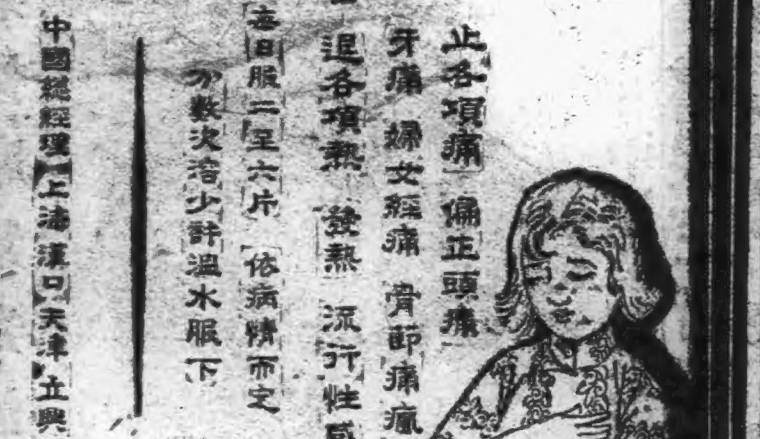 止各項痛 偏正頭痛
牙痛 婦女經痛 骨節痛瘋
退各項熱 發熱 流行性感
每日服二至六片 依病情而定
分數次溶少許溫水服下
中國總經理 上海漢口天津 立興